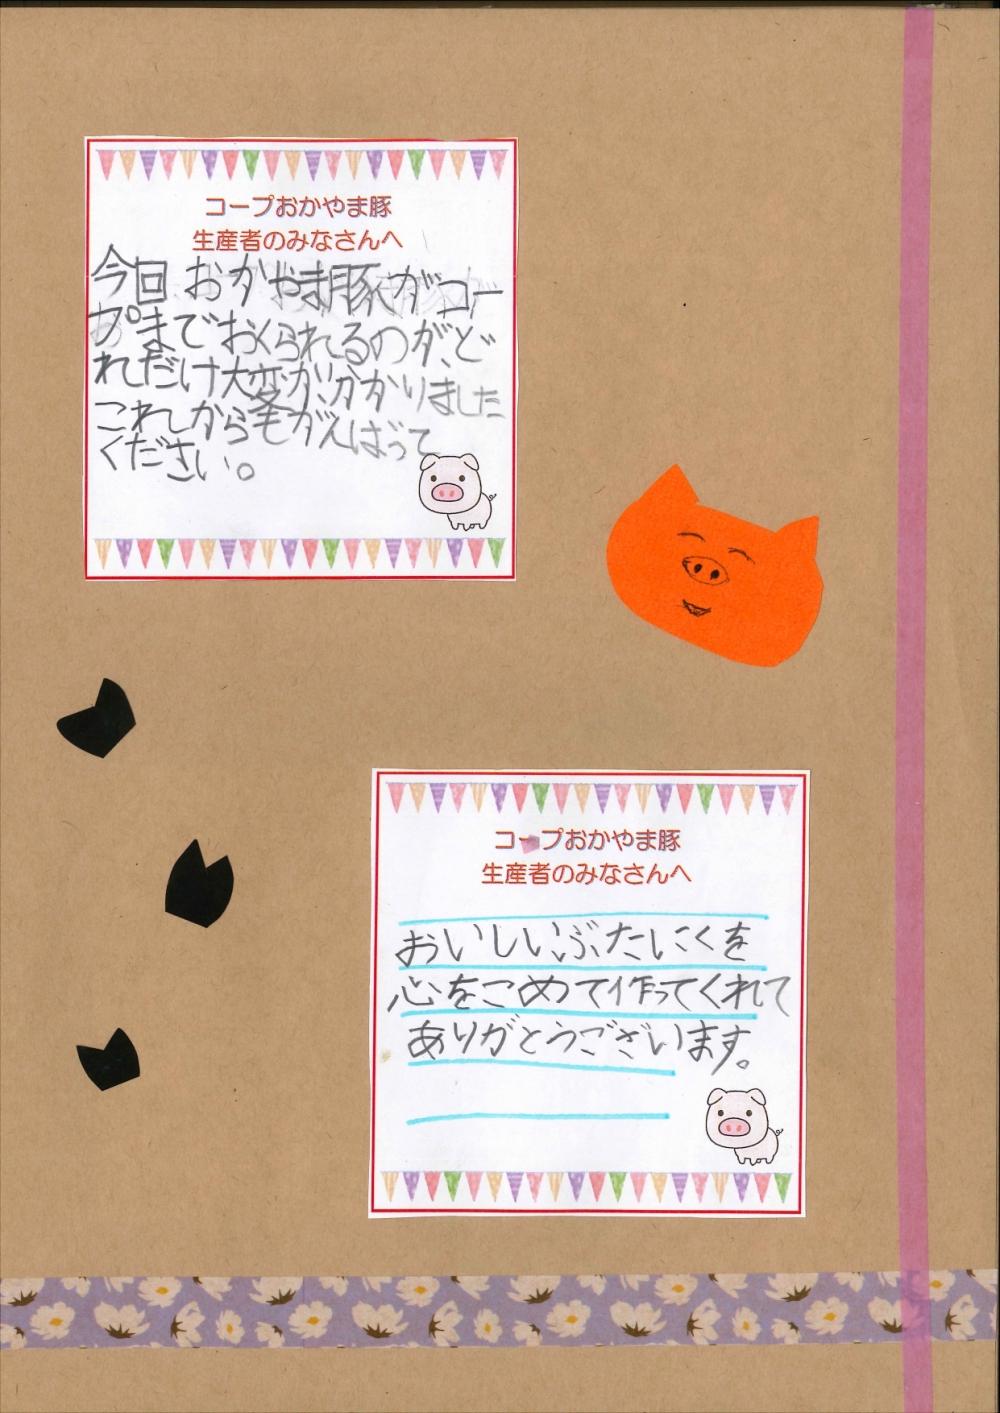 コープおかやま豚
生産者のみなさんへ
今回おかやま豚がコー
プまでおくられるのが、ど
れだけ大変か、分かりました
これからもがんばって
ください。
コープおかやま豚
生産者のみなさんへ
おいしいぶたにくを
心をこめて作ってくれて
ありがとうございます。